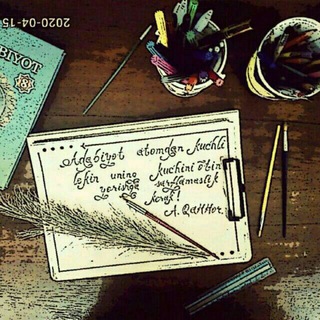 2020-04-15
BIYOT
Adabiyot atomdan kuchli
lekin uning kuchini o'tin
yorishga sarflamaslik
kerak!
A. Qahhor.